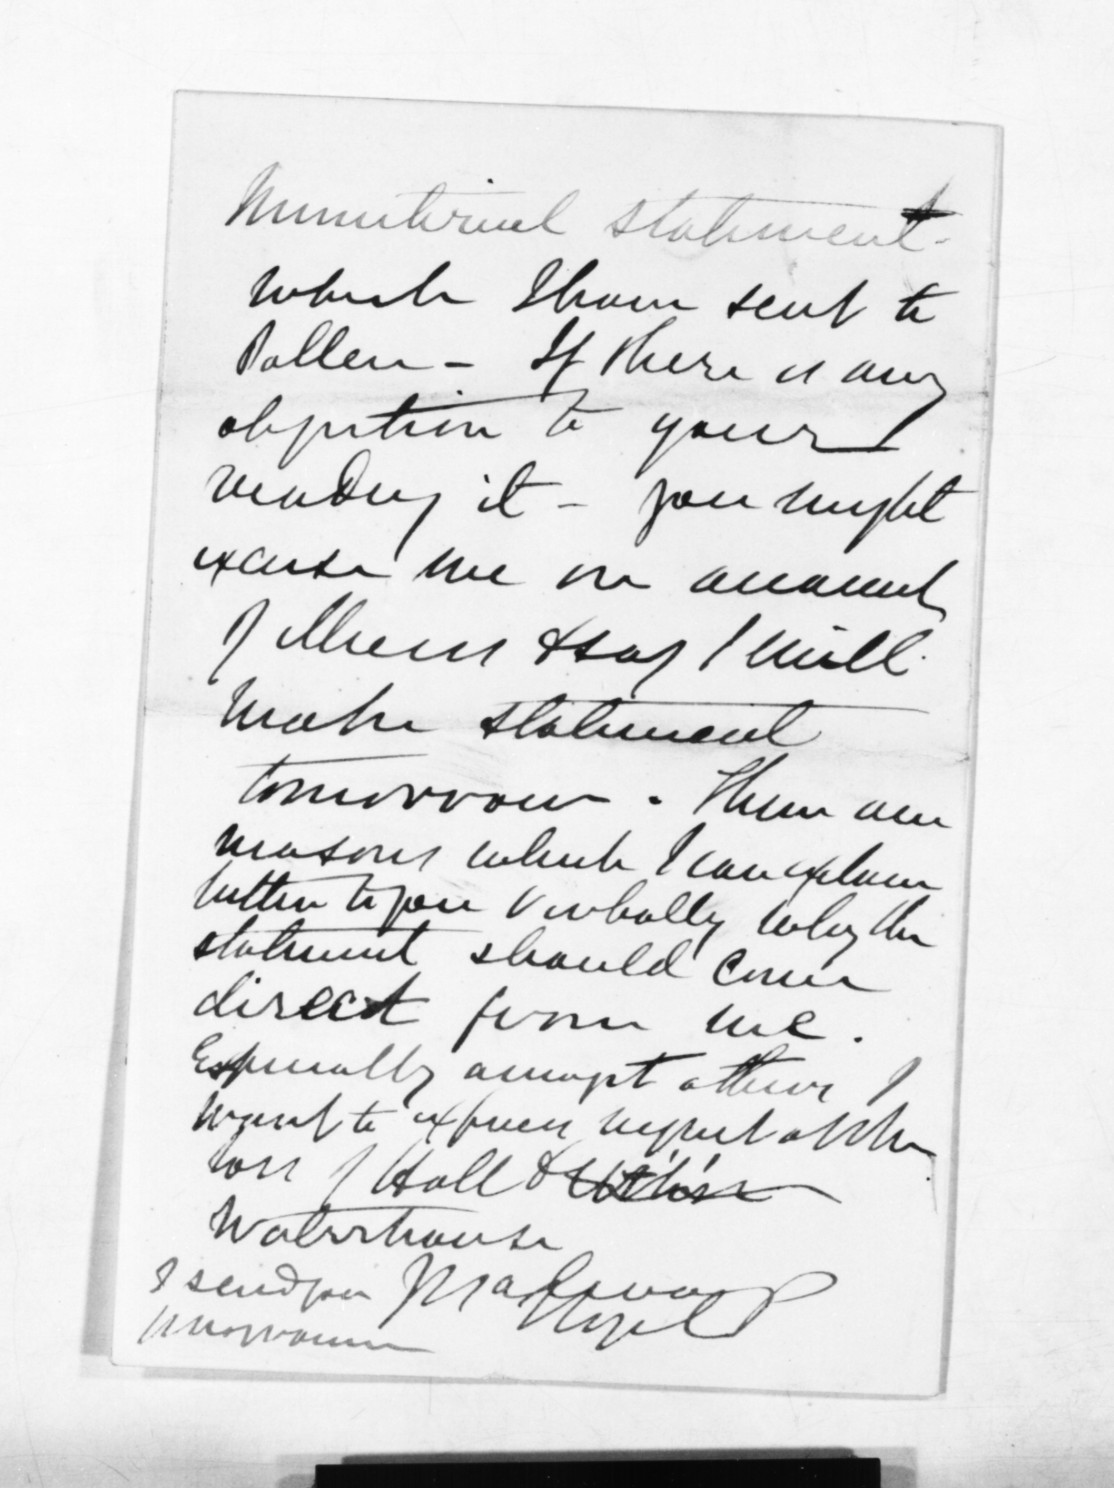 Ministerial statement -
which I have sent to
Pollen - If there is any
objection to your
reading it - you might
excuse me on account
of illness & say I will
make statement
tomorrow. There are
reasons which I can explain
better to you verbally why the
statement should come
direct from me.
Especially amongst others I
want to express regret at the
loss of Hall &
Waterhouse
I send you
Vogel